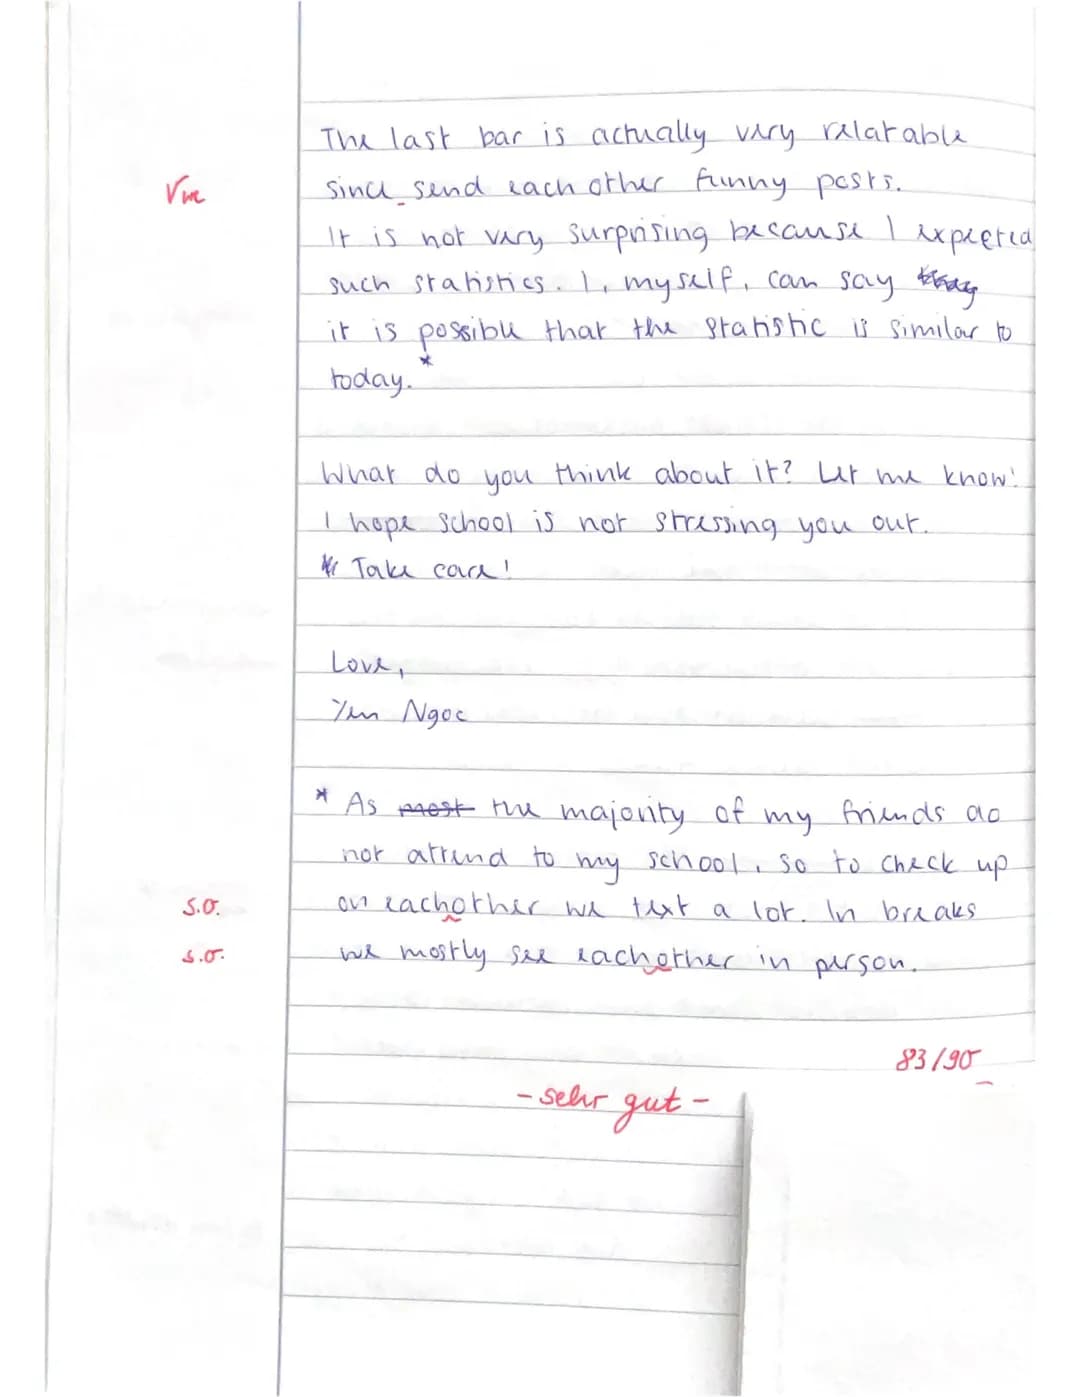 The last bar is actually very relatable
√we
since send each other funny posts.
It is not very surprising because I expected
such statistics. I, myself, can say
it is possible that the statistic is similar to
*
today.
What do you think about it? Let me know!
I hope school is not stressing you out.
Take care!
Love,
Yen Ngoc
* As most the majority of my friends do
not attend to my school, so to check up
s.o. on eachother we text a lot. In breaks
s.o. we mostly see eachother in person.
83/90
- sehr gut -